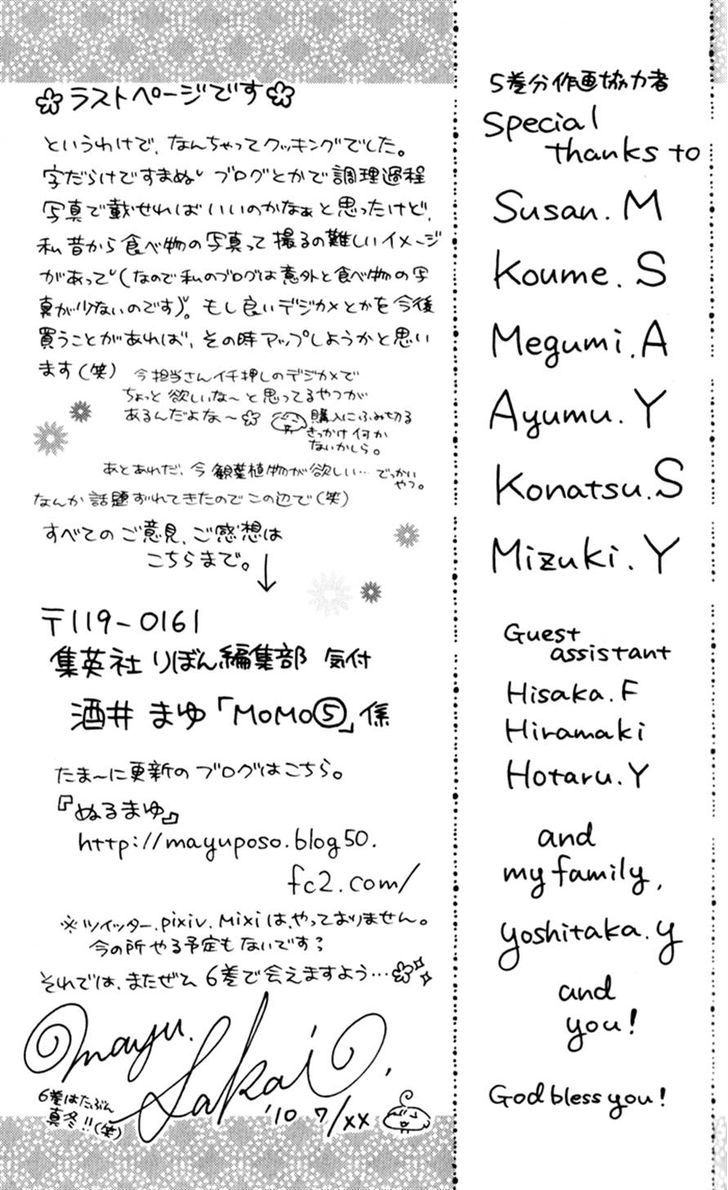 ラストページです
というわけで、なんちゃってクッキングでした。
字だらけですまぬ ブログとかで調理過程
写真で載せればいいのかなぁと思ったけど、
私昔から食べ物の写真って撮るの難しいイメージ
があって(なので私のブログは意外と食べ物の写
真が少ないのです)。もし良いデジカメとかを今後
買うことがあれば、その時アップしようかと思い
ます(笑)
今担当さんイチ押しのデジカメで
ちょっと欲しいな〜と思ってるやつが
あるんだよな〜
購入にふみ切る
きっかけ何か
ないかしら。
あとあれだ、今観葉植物が欲しい… でっかい
やつ。
なんか話題ずれてきたのでこの辺で(笑)
すべてのご意見、ご感想は
こちらまで。↓
〒119-0161
集英社 りぼん編集部 気付
酒井 まゆ「MOMO⑤」係
たま〜に更新のブログはこちら。
『ぬるまゆ』
http://mayuposo.blog50.
fc2.com/
※ツイッター、pixiv、Mixiは、やっておりません。
今の所やる予定もないです?
それでは、またぜひ6巻で会えますよう…
mayu.
Sakai
'10.7/XX
6巻はたぶん
真冬!!(笑)
5巻分作画協力者
Special
thanks to
Susan.M
Koume.S
Megumi.A
Ayumu.Y
Konatsu.S
Mizuki.Y
Guest
assistant
Hisaka.F
Hiramaki
Hotaru.Y
and
my family,
yoshitaka.y
and
you!
God bless you!